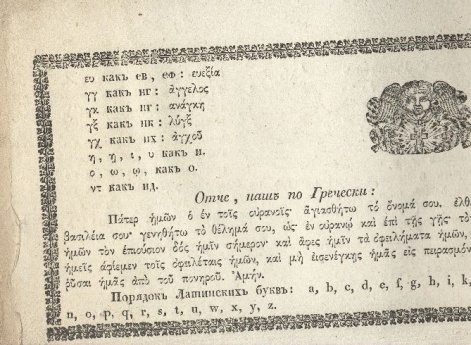 ευ какъ ев, еф: ευεξία
γγ какъ нг: ἄγγελος
γκ какъ нг: ἀνάγκη
γξ какъ нк: λύγξ
γχ какъ нх: ἀγχοῦ
η, ῃ, ι, υ какъ и.
ο, ω, ῳ, какъ о.
ντ какъ нд.
Отче, нашъ по Гречески:
Πάτερ ἡμῶν ὁ ἐν τοῖς οὐρανοῖς· ἁγιασθήτω τὸ ὄνομά σου. ἐλθ
βασιλεία σου· γενηθήτω τὸ θέλημά σου, ὡς ἐν οὐρανῷ καὶ ἐπὶ τῆς γῆς· τὸν
ἡμῶν τὸν ἐπιούσιον δὸς ἡμῖν σήμερον· καὶ ἄφες ἡμῖν τὰ ὀφειλήματα ἡμῶν,
ἡμεῖς ἀφίεμεν τοῖς ὀφειλέταις ἡμῶν, καὶ μὴ εἰσενέγκῃς ἡμᾶς εἰς πειρασμόν
ῥῦσαι ἡμᾶς ἀπὸ τοῦ πονηροῦ. Ἀμήν.
Порядокъ Латинскихъ буквъ: a, b, c, d, e, f, g, h, i, k,
n, o, p, q, r, s, t, u, w, x, y, z.